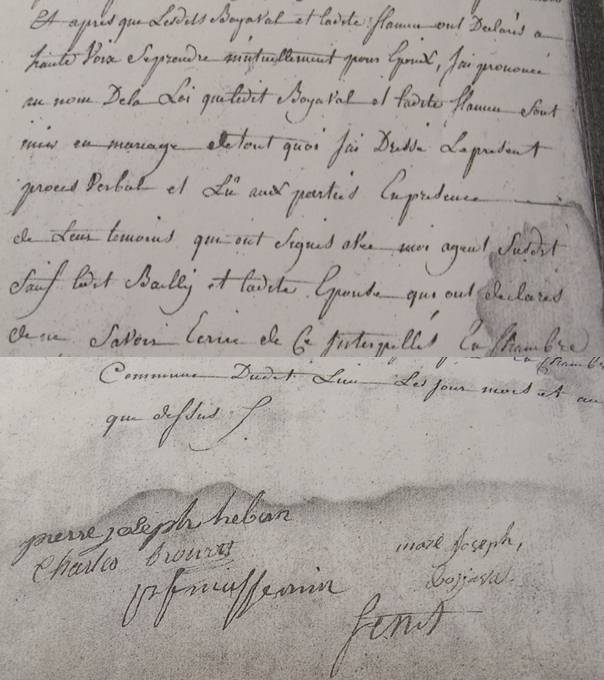 Et après que Lesdits Boyaval et ladite flamen ont Déclarés a
haute Voix Seprendre mutuellement pour Epoux, J'ai prononcé
au nom Dela Loi queledit Boyaval et ladite flamen Sont
unis en mariage et detout quoi J'ai Dressé Leprésent
procès Verbal et Lû aux parties Enprésence
de Leurs temoins qui ont Signés avec moi agent Susdit
Sauf ledit Bailly et ladite Epouse qui ont déclarés
de ne Savoir Ecrire de Ce Interpellés En la Chambre
Commune Dudit Lieu Les Jour mois et an
que dessus
pierre joseph
Charles
marc Joseph,
Boyaval